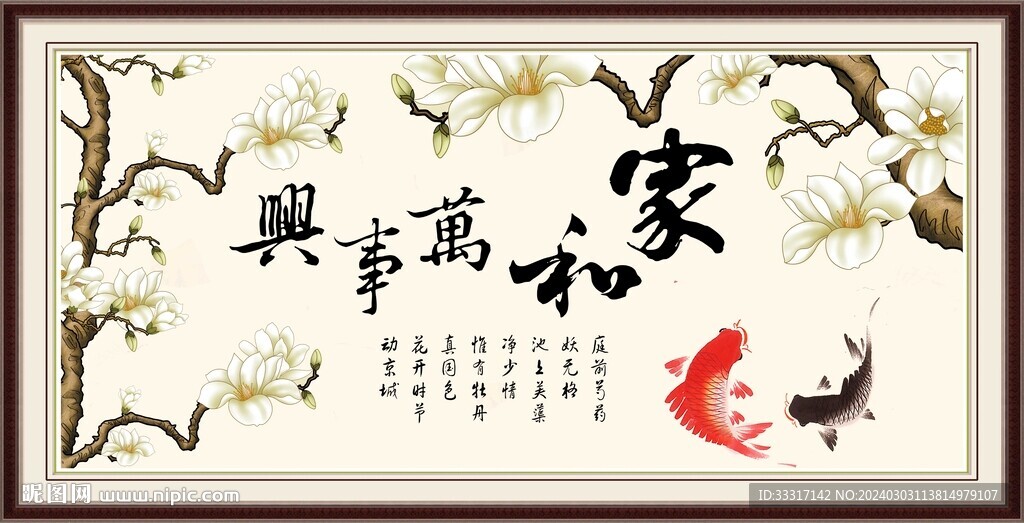 家和萬事興
庭前芍药
妖无格
池上芙蕖
净少情
惟有牡丹
真国色
花开时节
动京城
昵图网 www.nipic.com
ID:33317142 NO:20240303113814979107